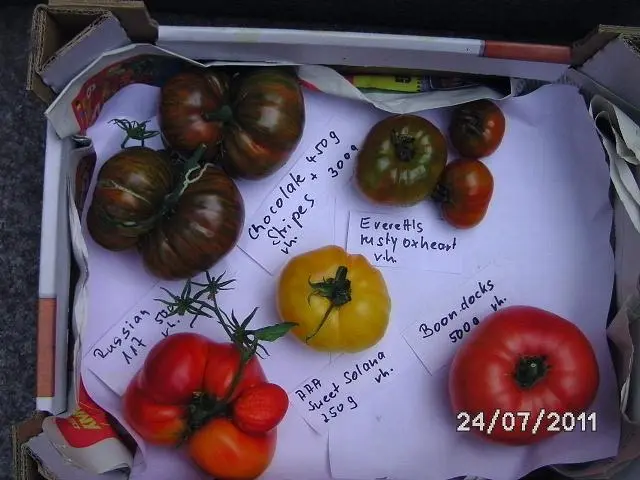 Chocolate 450g
Stripes + 300g
v.h.
Everetts
rusty oxheart
v.h.
Russian
117 v.h.
AAA
Sweet Solana
250g v.h.
Boondocks
500g v.h.
24/07/2011